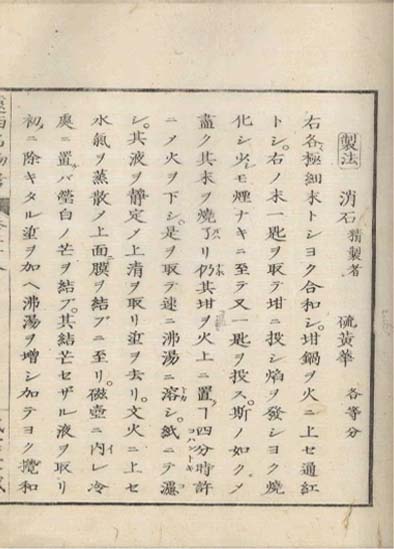 製法 消石精製者 硫黄華 各等分
右各極細末トシヨク合和シ。坩鍋ヲ火ニ上セ通紅
トシ。右ノ末一匙ヲ取テ坩ニ投シ焰ヲ發シヨク燒
化シ少モ煙ナキニ至テ又一匙ヲ投ス。斯ノ如クメ
盡ク其末ヲ燒了リ仍其坩ヲ火上ニ置ヿ四分時許
ニメ火ヲ下シ。是ヲ取テ速ニ沸湯ニ溶シ。紙ニテ濾
シ。其液ヲ靜定メ上清ヲ取リ滓ヲ去リ。文火ニ上セ
水氣ヲ蒸散メ上面膜ヲ結ブニ至リ。磁壺ニ内レ冷
處ニ置バ瑩白ノ芒ヲ結ブ。其結芒セザル液ヲ取リ
初ニ除キタル滓ヲ加ヘ沸湯ヲ增シ加テヨク攪和